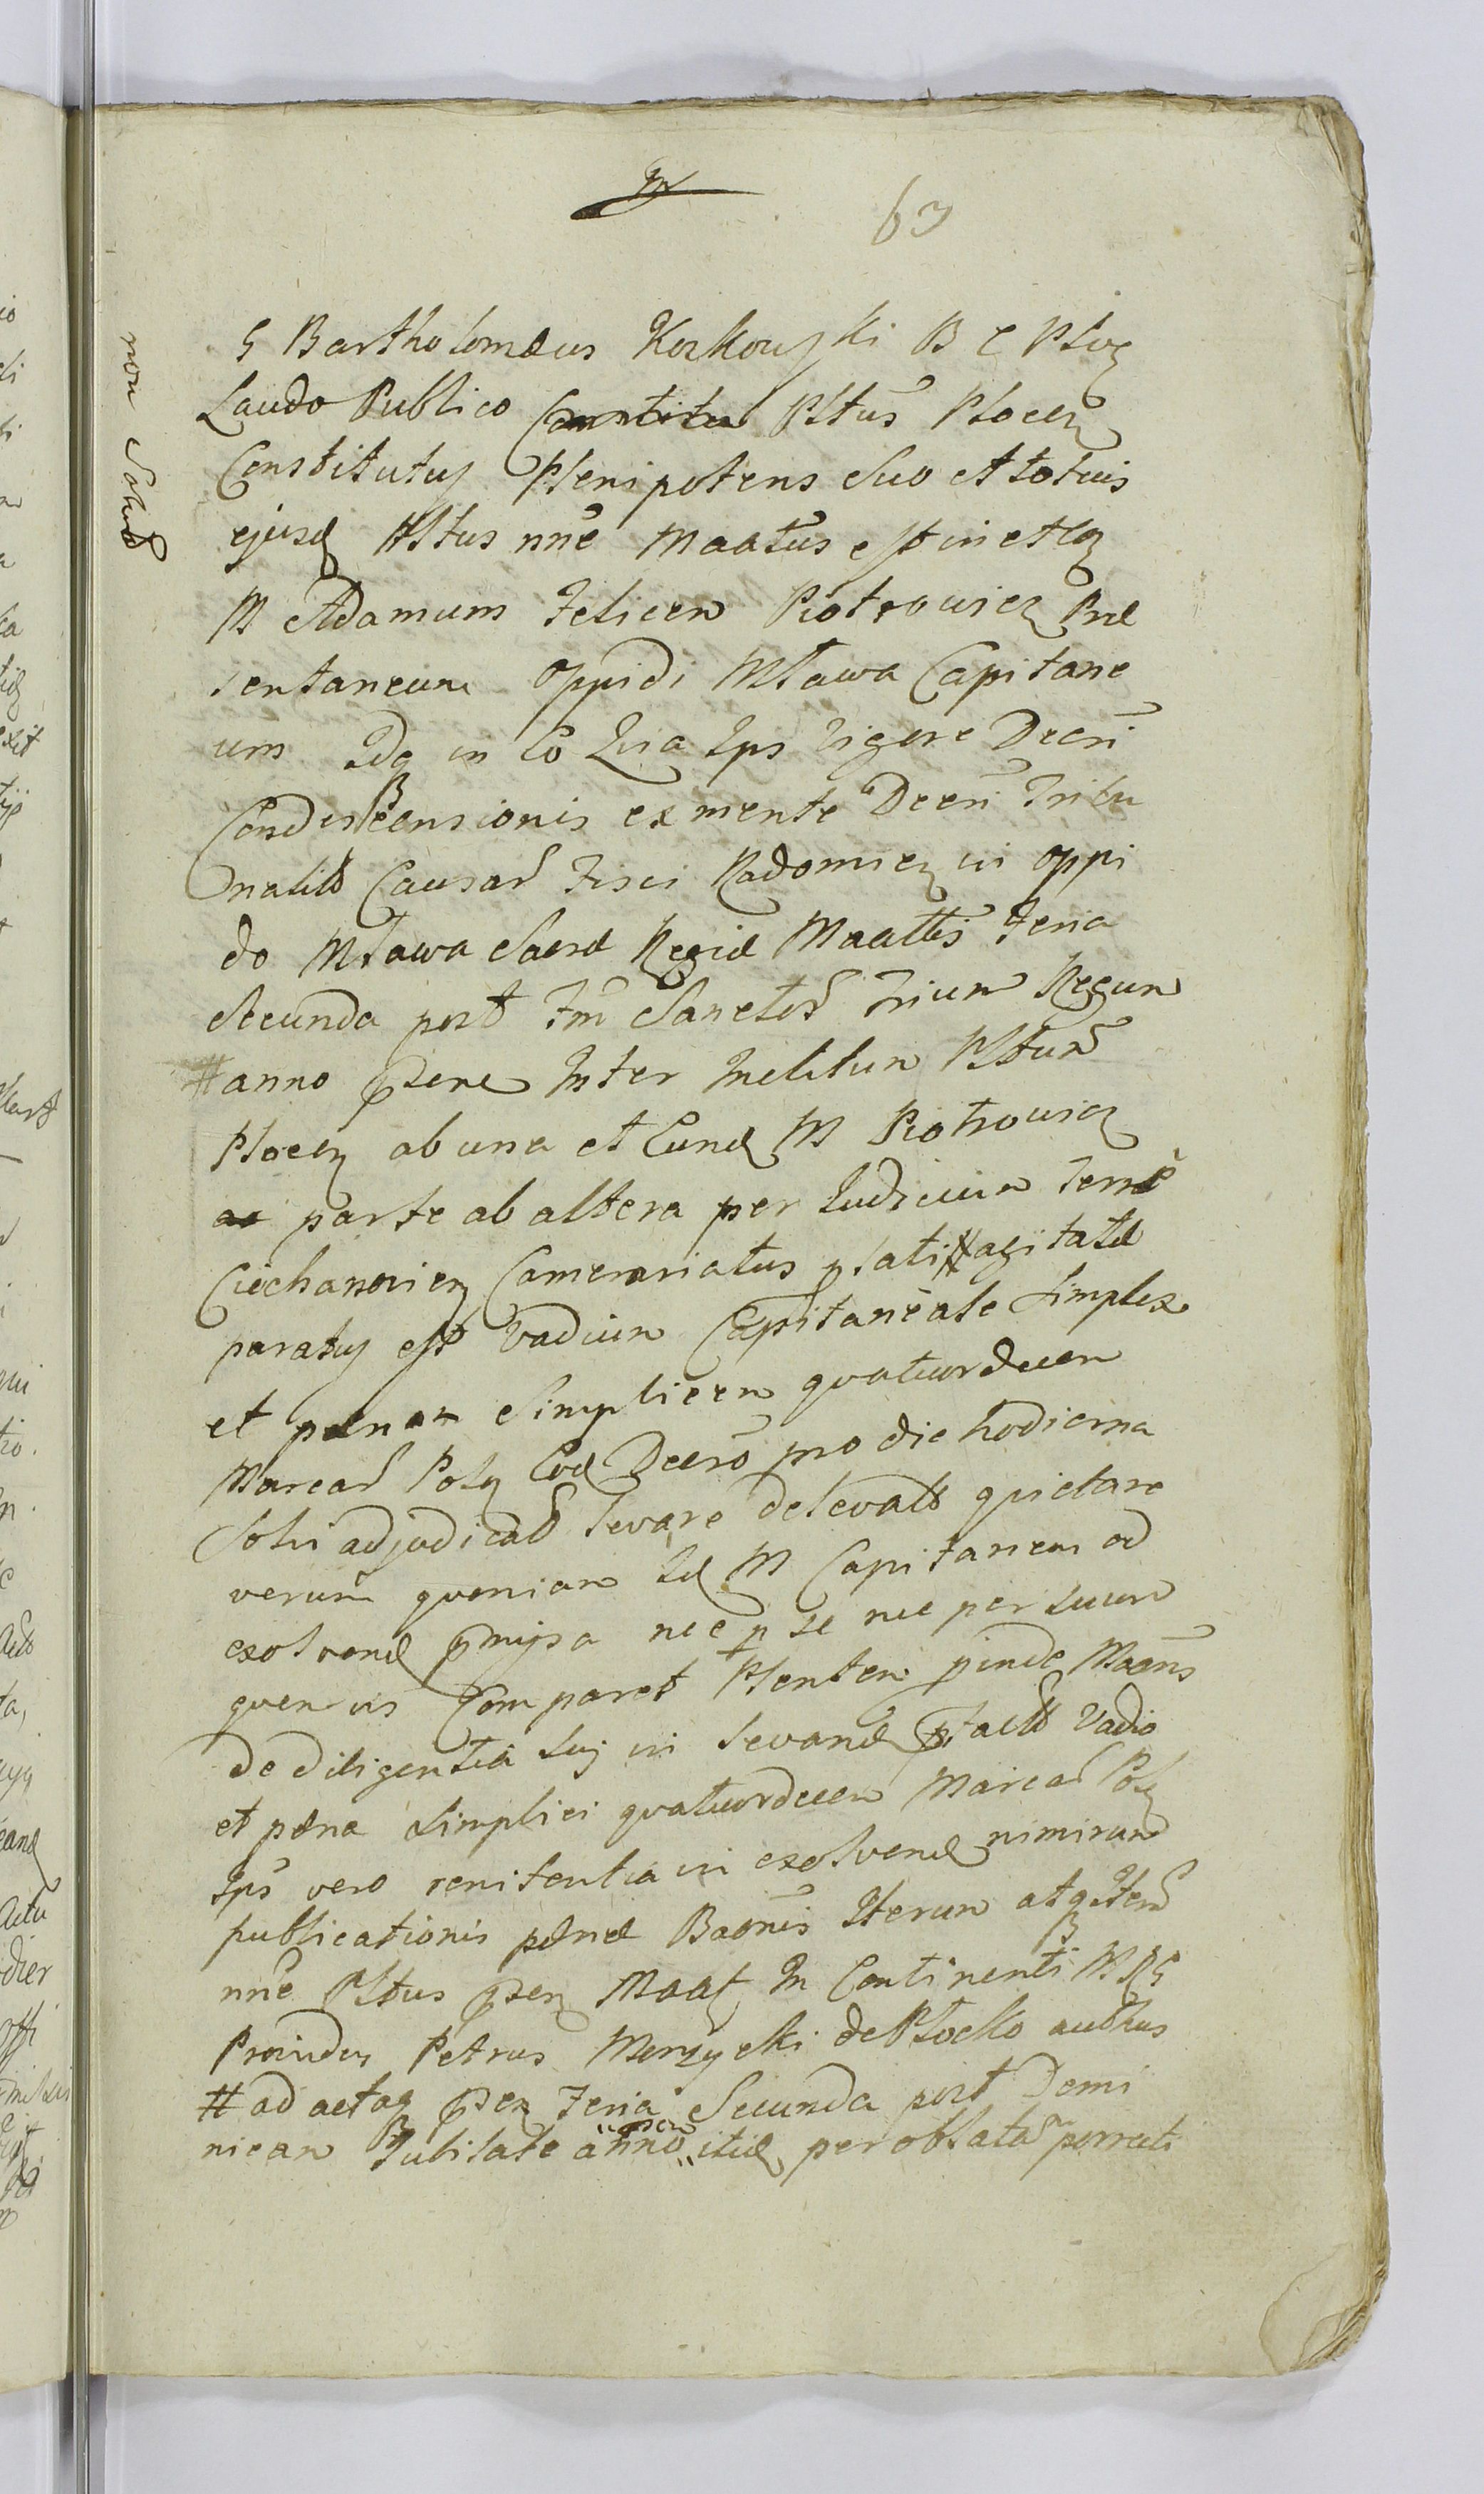 63
non Solut
G Bartholomæus Korkowski B C Ploc
Laudo Publico Constitu Plttus Plocen
Constitutus Plenipotens Suo et totuis
ejusd Plttus nne Maatus est in et con
M Adamum Felicem Piotrowicz Præ
sentaneum oppidi Mława Capitane
um Idq in Eo Quia Ips Vigore Decri
Condescensionis ex mente Decri Tribu
nalitt Causar Fisci Radomien in oppi
do Mława Sacræ Regiæ Maattis Feria
Secunda post Fm Sanctor Trium Regum
# anno præsene Inter Inclitum Plttum
Plocen ab una et Eund M Piotrowicz
parte ab altera per Judicium Terrre
Ciechanovien Camerariatus agitatæ
paratus est Vadium Capitaneale Simplex
et pænam Simplicem quatuordecem
Marcar Pol Eod Decro pro die hodierna
Solvi adjudicat levare delevatt quietare
verum quoniam Id M Capitaneus ad
exolvend præmissa nec p se nec per Suum
quem vis Comparet Plenten pinde Maens
de diligentia Sui in levand Vadio
et pæna Simplici quatuordecem Marcar Pol
Ips vero renitentia in exolvend nimirum
publicationis pænæ Baonis Iterum atq Iterum
nne Plttus præsen Maat In Continenti MRG
Providus Petrus Murzycki de Płocko authus
# ad actaq præsen Feria Secunda post Domi
nicam Jubilate anno itid per oblatam porrecti